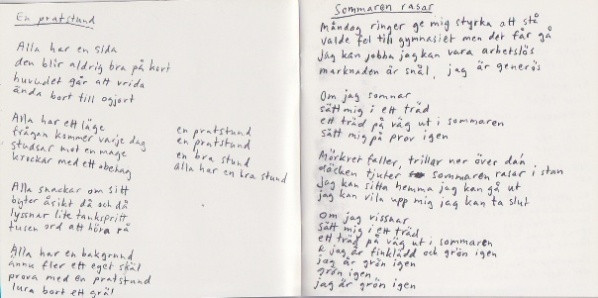 En pratstund
Alla har en sida
den blir aldrig bra på kort
huvudet går att vrida
ända bort till ogjort
Alla har ett läge
frågan kommer varje dag
studsar mot en mage
krockar med ett obehag
en pratstund
en pratstund
en bra stund
alla har en bra stund
Alla snackar om sitt
byter åsikt då och då
lyssnar lite tankspritt
tusen ord att höra på
Alla har en bakgrund
ännu fler ett eget skäl
prova med en pratstund
lura bort ett gräl
Sommaren rasar
Måndag ringer ge mig styrka att stå
valde fel till gymnasiet men det får gå
jag kan jobba jag kan vara arbetslös
marknaden är snäl, jag är generös
Om jag somnar
sätt mig i ett träd
ett träd på väg ut i sommaren
sätt mig på prov igen
Mörkret faller, trillar ner över dan
däcken tjuter sommaren rasar i stan
jag kan sitta hemma jag kan gå ut
jag kan vila upp mig jag kan ta slut
Om jag vissnar
sätt mig i ett träd
ett träd på väg ut i sommaren
& jag är finklädd och grön igen
jag är grön igen
grön igen
jag är grön igen